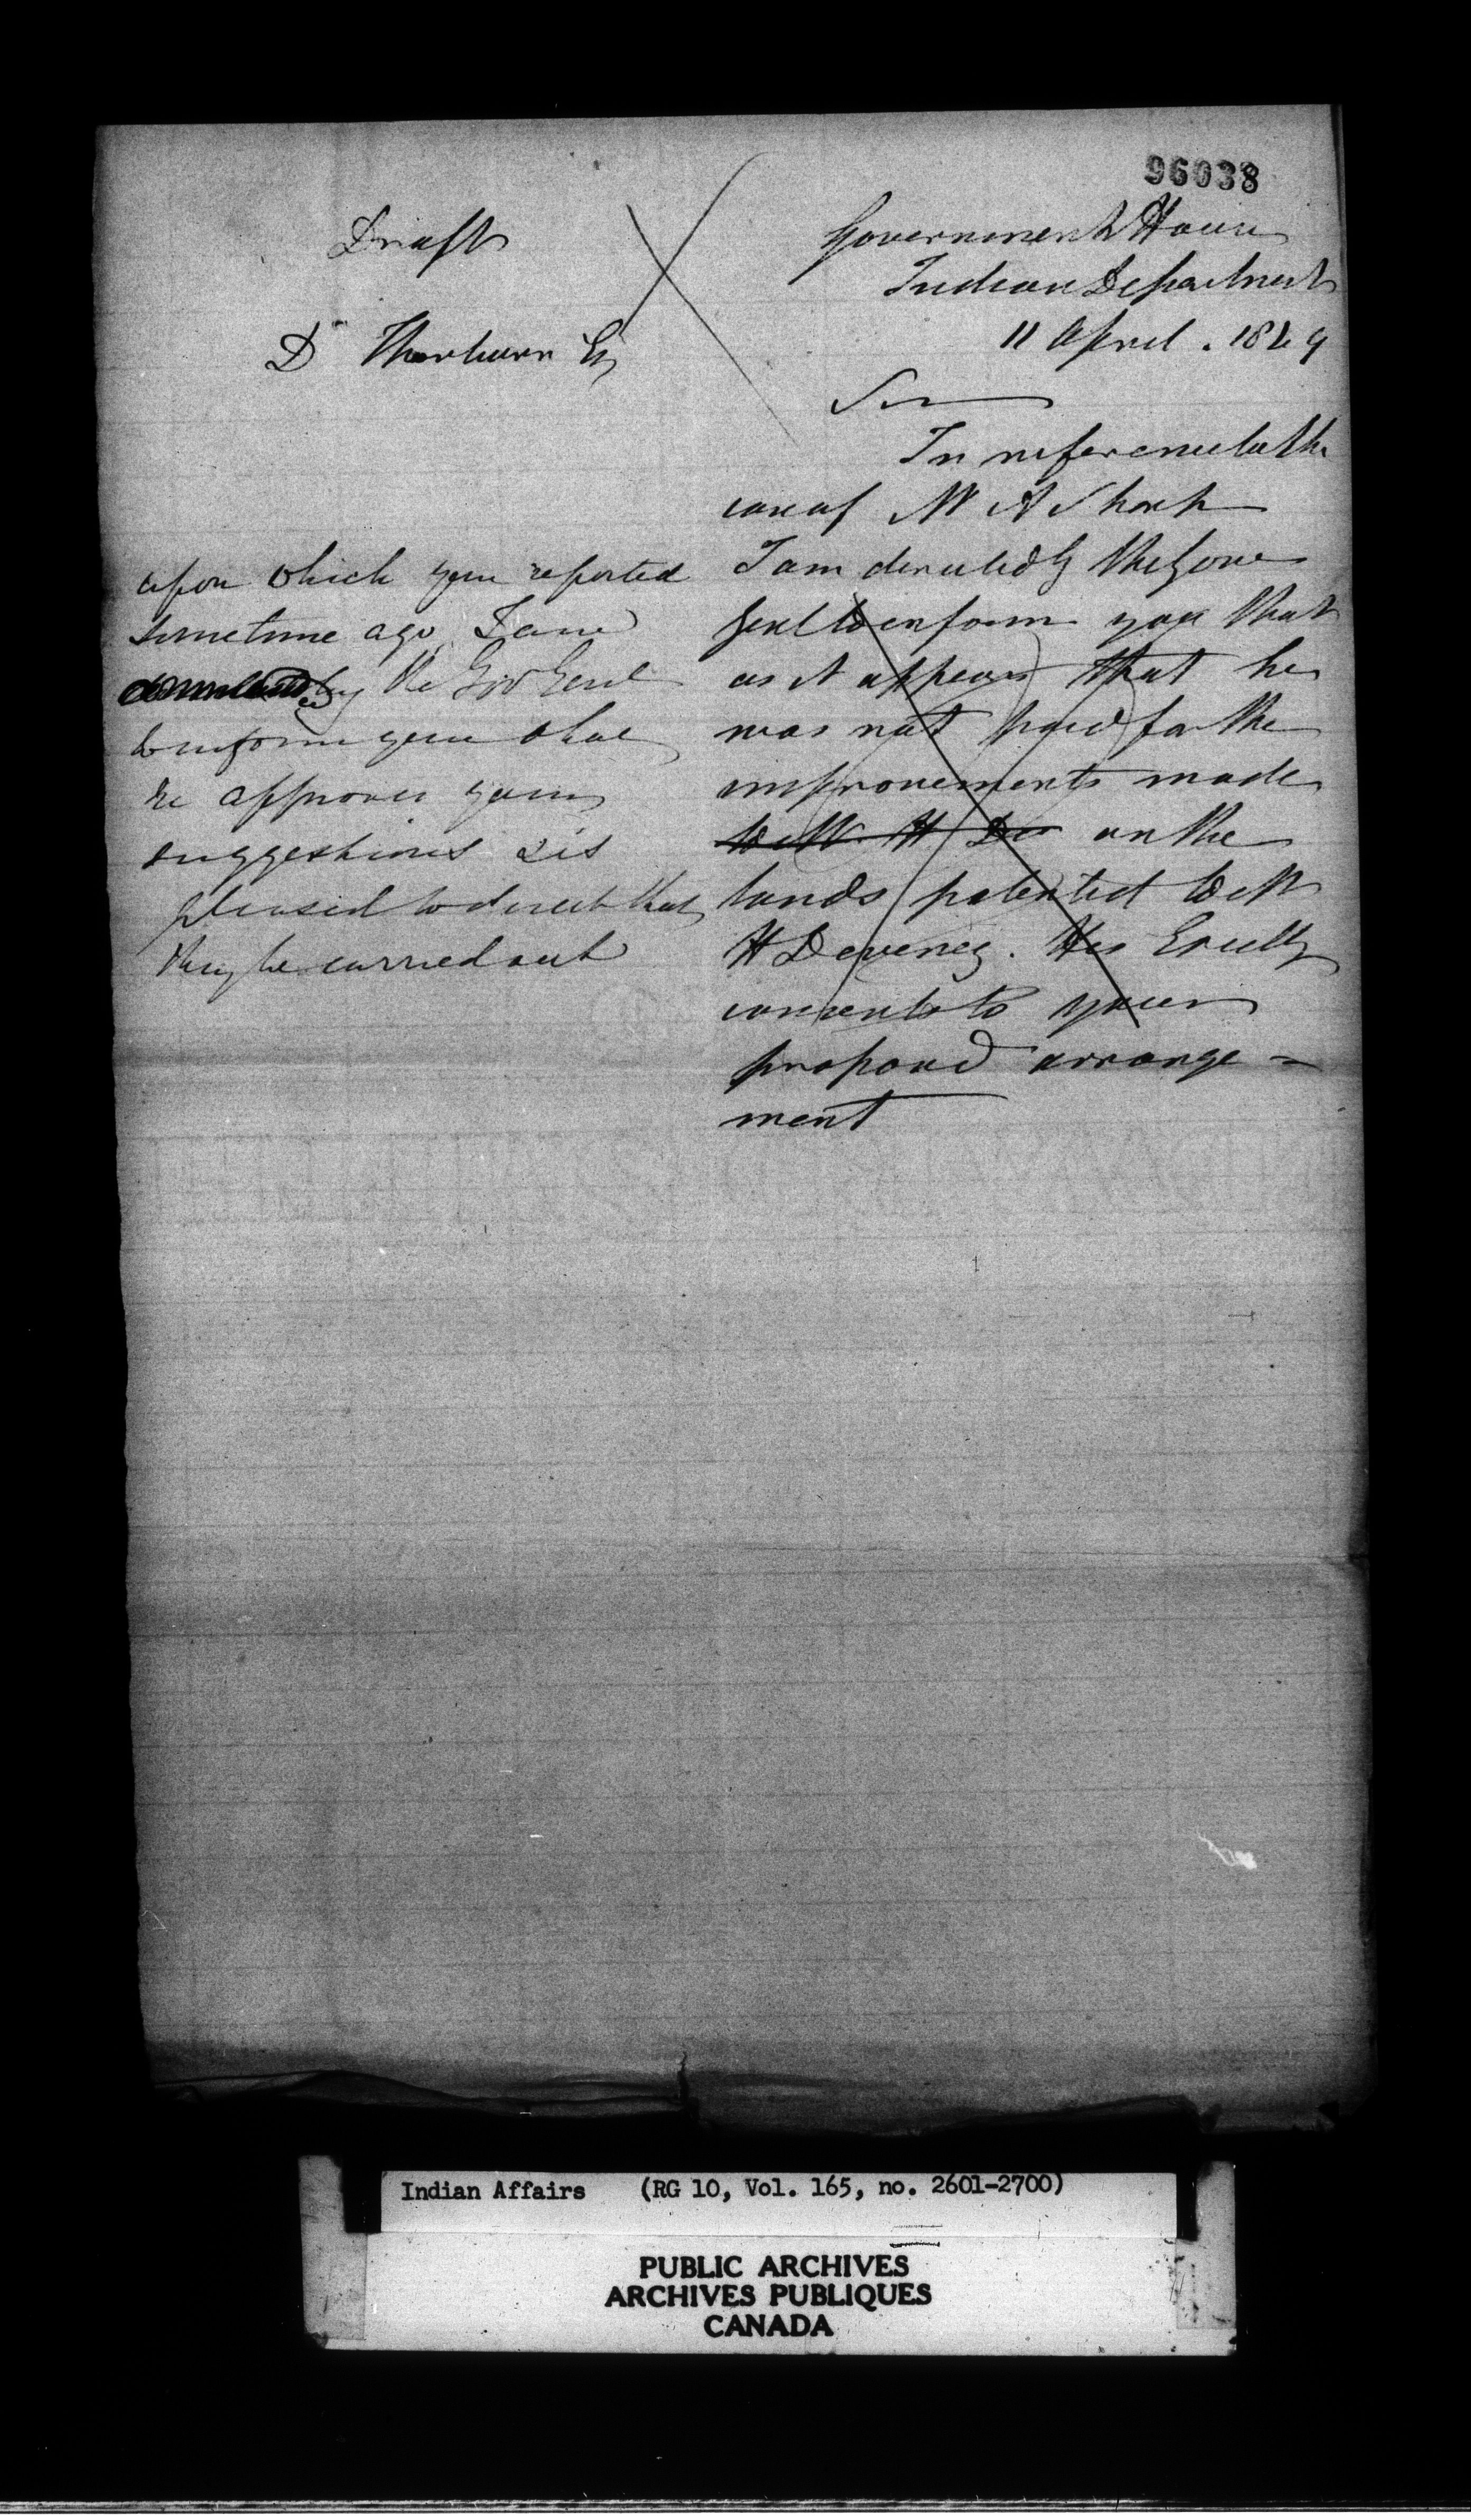 96038
Draft
Government House
Indian Department
11 April . 1849
D Thorburn Esq
Sir
In reference to the
case of Mr A Shark
I am directed by the Gover
Genl to inform you that
as it appears that he
was not paid for the
improvements made
to Mr H De on the
lands patented to Mr
H Deveney. His Excelly
consents to your
proposed arrange =
ment
upon which you reported
sometime ago, I am
by the Gov Genl
to inform you that
he approves your
suggestions & is
pleased to direct that
they be carried out
Indian Affairs (RG 10, Vol. 165, no. 2601-2700)
PUBLIC ARCHIVES
ARCHIVES PUBLIQUES
CANADA